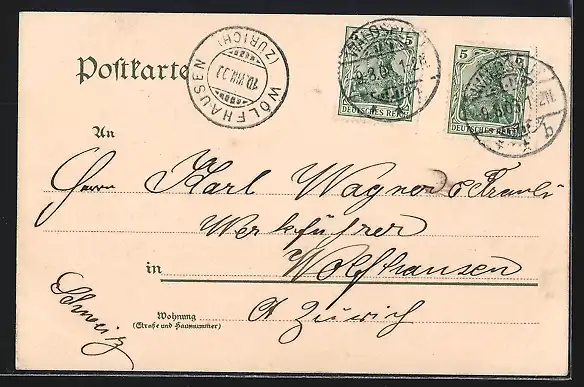 Postkarte
WOLFHAUSEN
(ZÜRICH)
5
DEUTSCHES REICH
5
DEUTSCHES REICH
An
Herrn Karl Wagner
Werkführer
in Wolfhausen
Ct Zürich
Schweiz
Wohnung
(Straße und Hausnummer)